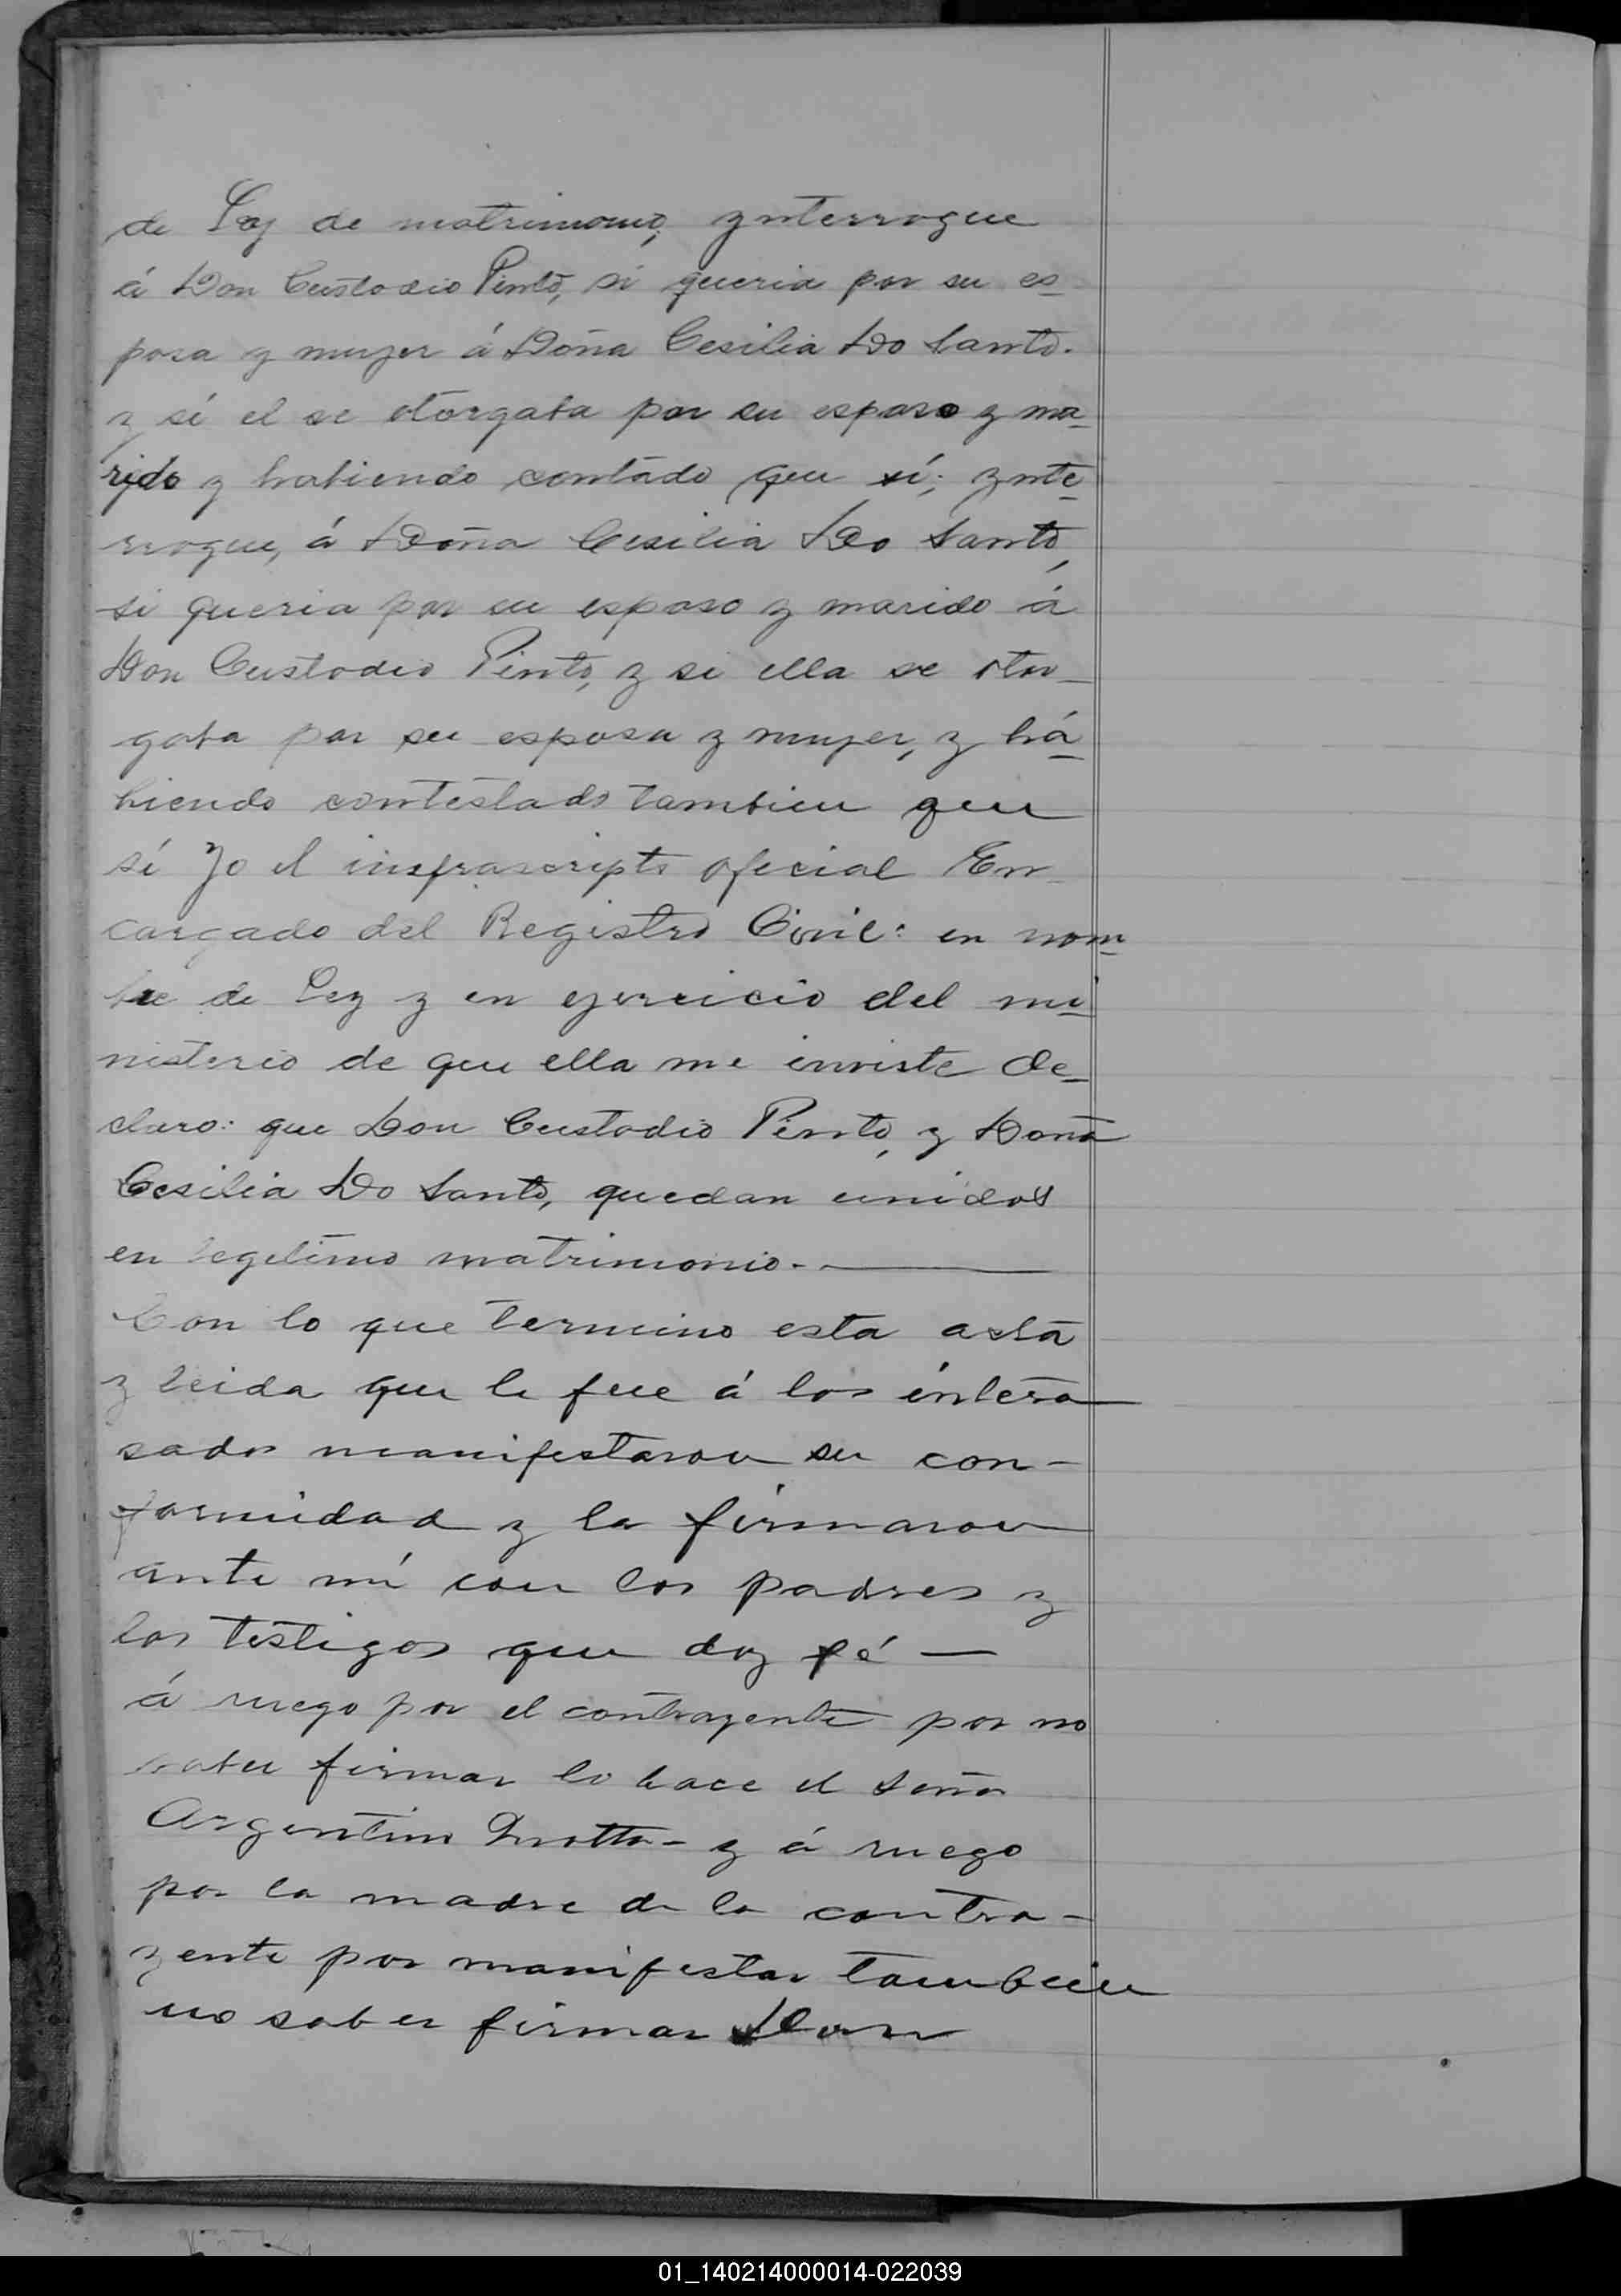 de Ley de matrimonio, ynterrogue
á Don Custodio Pinto, si queria por su es-
posa y mujer á Doña Cesilia Do Santo.
y sí el se otorgaba por su esposo y ma-
rido y habiendo contado que sí; ynte-
rrogue, á Doña Cesilia Do Santo,
si queria por su esposo y marido á
Don Custodio Pinto, y si ella se otor-
gaba por su esposa y mujer, y há-
biendo contestado tambien que
sí Yo el infrascripto oficial En-
cargado del Registro Civil: en nom-
bre de Ley y en ejercicio del mi-
nisterio de que ella me inviste de-
claro: que Don Custodio Pinto, y Doña
Cesilia Do Santo, quedan unidos
en legitimo matrimonio.-
Con lo que termino esta acta
y leida que le fue á los intere
sados manifestaron su con-
formidad y la firmaron
ante mí con los padres y
los testigos que doy fé —
á ruego por el contrayente por no
saber firmar lo hace el Señor
Argentino - y á ruego
por la madre de la contra-
yente por manifestar tambien
no saber firmar Don
01_140214000014-022039